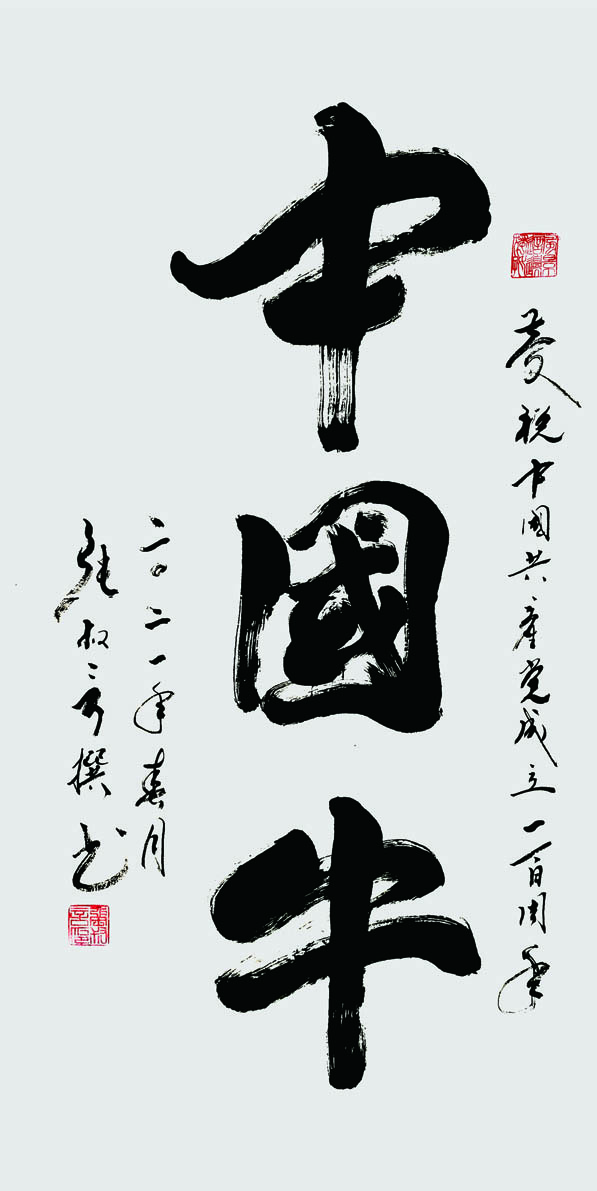 慶祝中國共產党成立一百周年
中國牛
二〇二一年春月
張叔撰书